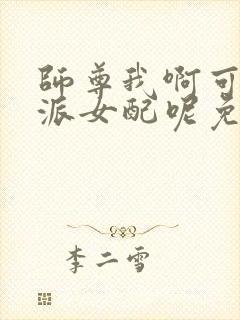 師尊我啊可
派女配呢免
李二雪